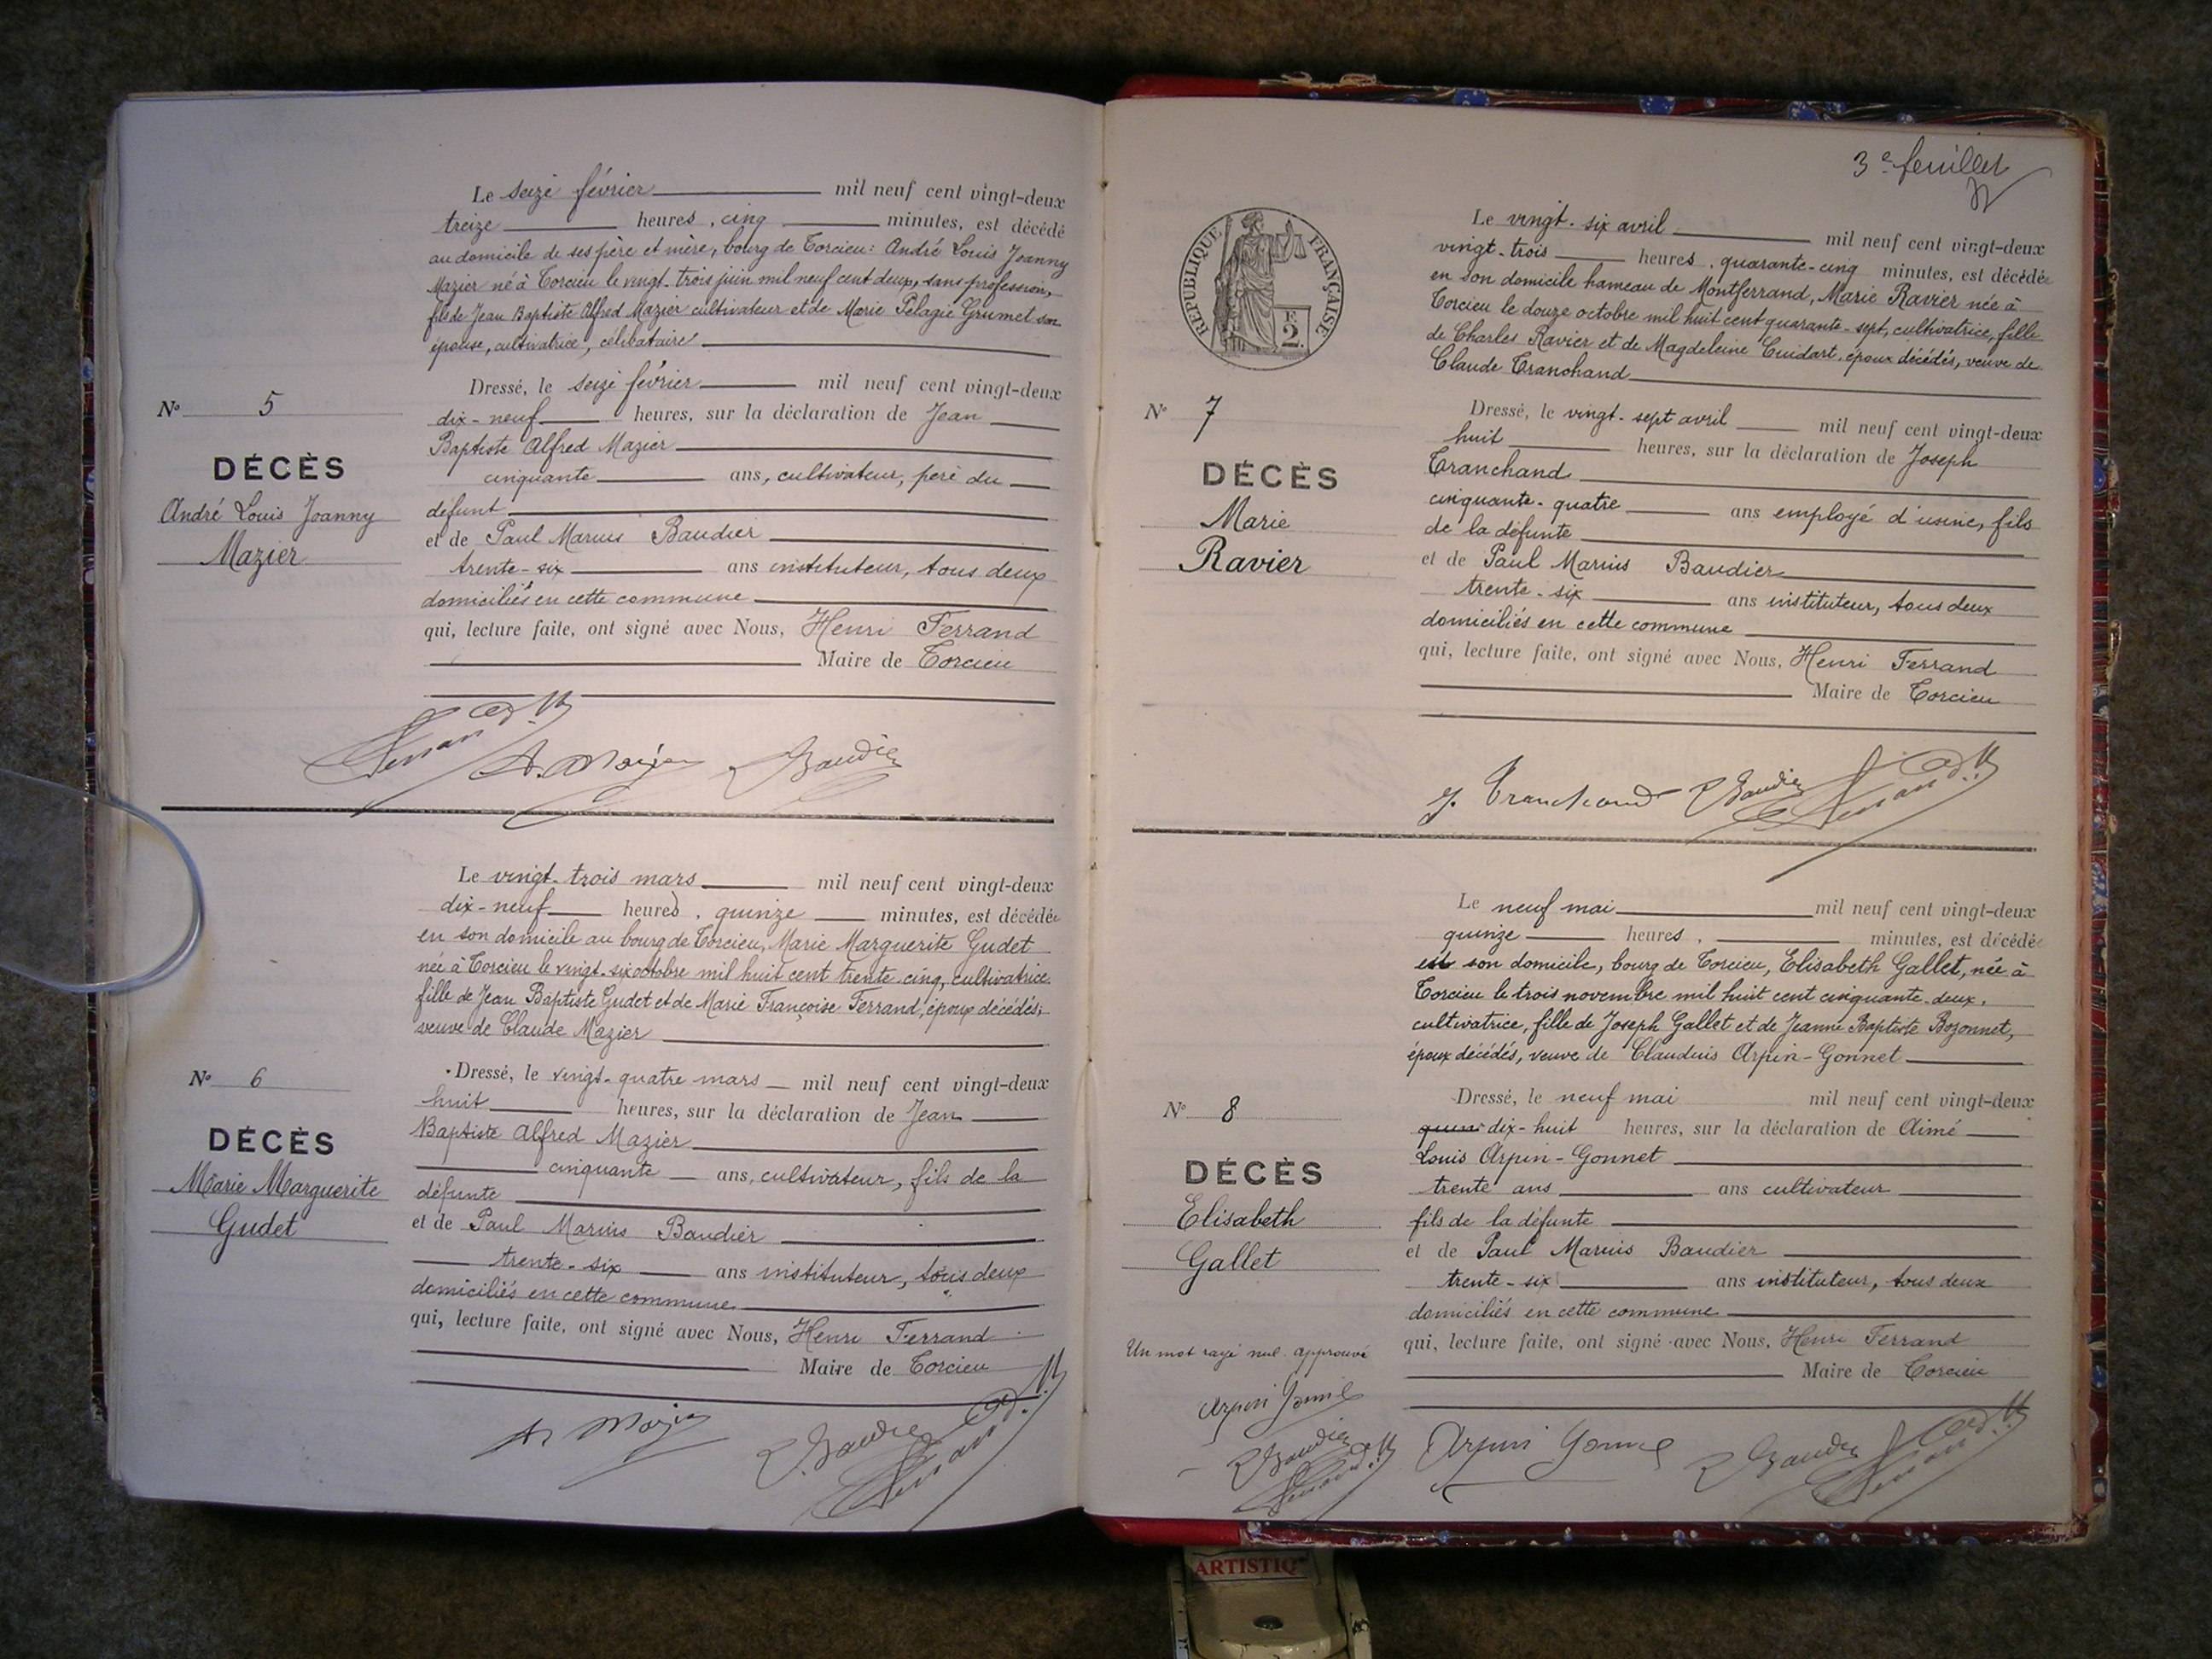 Le seize février mil neuf cent vingt-deux
treize heures, cinq minutes, est décédé
au domicile de ses père et mère, bourg de Torcieu: André Louis Joanny
Mazier né à Torcieu le vingt-trois juin mil neuf cent deux, sans profession,
fils de Jean Baptiste Alfred Mazier cultivateur et de Marie Pélagie Grumet son
épouse, cultivatrice, célibataire
Dressé, le seize février mil neuf cent vingt-deux
dix-neuf heures, sur la déclaration de Jean
Baptiste Alfred Mazier
cinquante ans, cultivateur, père du
défunt
et de Paul Marius Baudier
trente-six ans instituteur, tous deux
domiciliés en cette commune
qui, lecture faite, ont signé avec Nous, Henri Ferrand
Maire de Torcieu
N° 5
DÉCÈS
André Louis Joanny
Mazier
Ferrand A. Mazier Baudier
Le vingt-trois mars mil neuf cent vingt-deux
dix-neuf heures, quinze minutes, est décédée
en son domicile au bourg de Torcieu, Marie Marguerite Gudet
née à Torcieu le vingt-six octobre mil huit cent trente-cinq, cultivatrice
fille de Jean Baptiste Gudet et de Marie Françoise Ferrand, époux décédés,
veuve de Claude Mazier
Dressé, le vingt-quatre mars mil neuf cent vingt-deux
huit heures, sur la déclaration de Jean
Baptiste Alfred Mazier
cinquante ans, cultivateur, fils de la
défunte
et de Paul Marius Baudier
trente-six ans instituteur, tous deux
domiciliés en cette commune
qui, lecture faite, ont signé avec Nous, Henri Ferrand
Maire de Torcieu
N° 6
DÉCÈS
Marie Marguerite
Gudet
A Mazier Baudier Ferrand
3e feuillet
REPUBLIQUE FRANÇAISE
F.
2.
Le vingt-six avril mil neuf cent vingt-deux
vingt-trois heures, quarante-cinq minutes, est décédée
en son domicile hameau de Montferrand, Marie Ravier née à
Torcieu le douze octobre mil huit cent quarante-sept, cultivatrice, fille
de Charles Ravier et de Magdeleine Cuidart, époux décédés, veuve de
Claude Tranchand
Dressé, le vingt-sept avril mil neuf cent vingt-deux
huit heures, sur la déclaration de Joseph
Tranchand
cinquante-quatre ans employé d'usine, fils
de la défunte
et de Paul Marius Baudier
trente-six ans instituteur, tous deux
domiciliés en cette commune
qui, lecture faite, ont signé avec Nous, Henri Ferrand
Maire de Torcieu
N° 7
DÉCÈS
Marie
Ravier
J. Tranchand Baudier Ferrand
Le neuf mai mil neuf cent vingt-deux
quinze heures, minutes, est décédée
en son domicile, bourg de Torcieu, Elisabeth Gallet, née à
Torcieu le trois novembre mil huit cent cinquante-deux,
cultivatrice, fille de Joseph Gallet et de Jeanne Baptiste Bozonnet,
époux décédés, veuve de Claudius Arpin-Gonnet
Dressé, le neuf mai mil neuf cent vingt-deux
dix-huit heures, sur la déclaration de Aimé
Louis Arpin-Gonnet
trente ans ans cultivateur
fils de la défunte
et de Paul Marius Baudier
trente-six ans instituteur, tous deux
domiciliés en cette commune
qui, lecture faite, ont signé avec Nous, Henri Ferrand
Maire de Torcieu
N° 8
DÉCÈS
Elisabeth
Gallet
Un mot rayé nul approuvé
Arpin Gonnet
Baudier
Ferrand
Arpin Gonnet Baudier Ferrand
ARTISTIQ